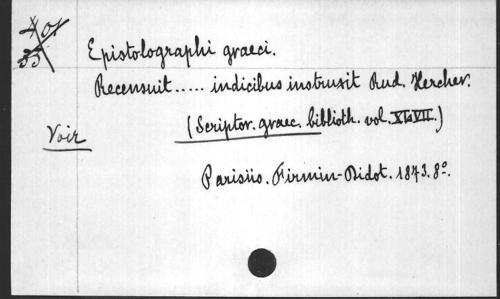 401
33
Epistolographi graeci.
Recensuit..... indicibus instruxit Rud. Hercher.
(Scriptor. graec. biblioth. vol. XLVII.)
Voir
Parisiis. Firmin-Didot. 1873. 8º.